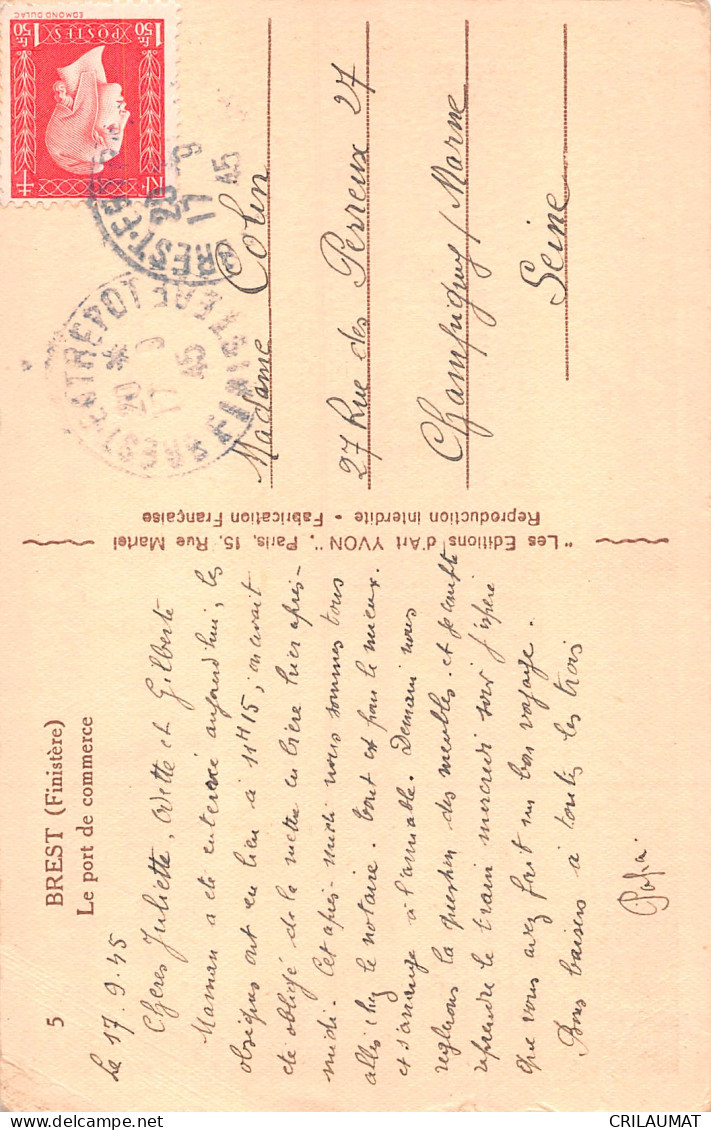 5 BREST (Finistère)
Le port de commerce
Le 17.9.45
Chères Juliette, Odette et Gilberte
Maman a été enterrée aujourd'hui, les
obsèques ont eu lieu à 11H15, on avait
été obligé de la mettre en bière hier après-
midi. Cet après-midi nous sommes tous
allés chez le notaire. tout est pour le mieux.
et s'arrange à l'amiable. Demain nous
reglerons la question des meubles. et je compte
reprendre le train mercredi soir j'espère
que vous avez fait un bon voyage.
Bons baisers à toutes les trois
Papa
"Les Editions d'Art YVON", Paris, 15, Rue Martel
Reproduction interdite - Fabrication Française
Madame Colin
27 Rue des Perreux 27
Champigny / Marne
Seine
1f50 POSTES 1f50
EDMOND DULAC
RF
BREST
17 9
45
BREST
FINISTERE
17 9
45
CRILAUMAT